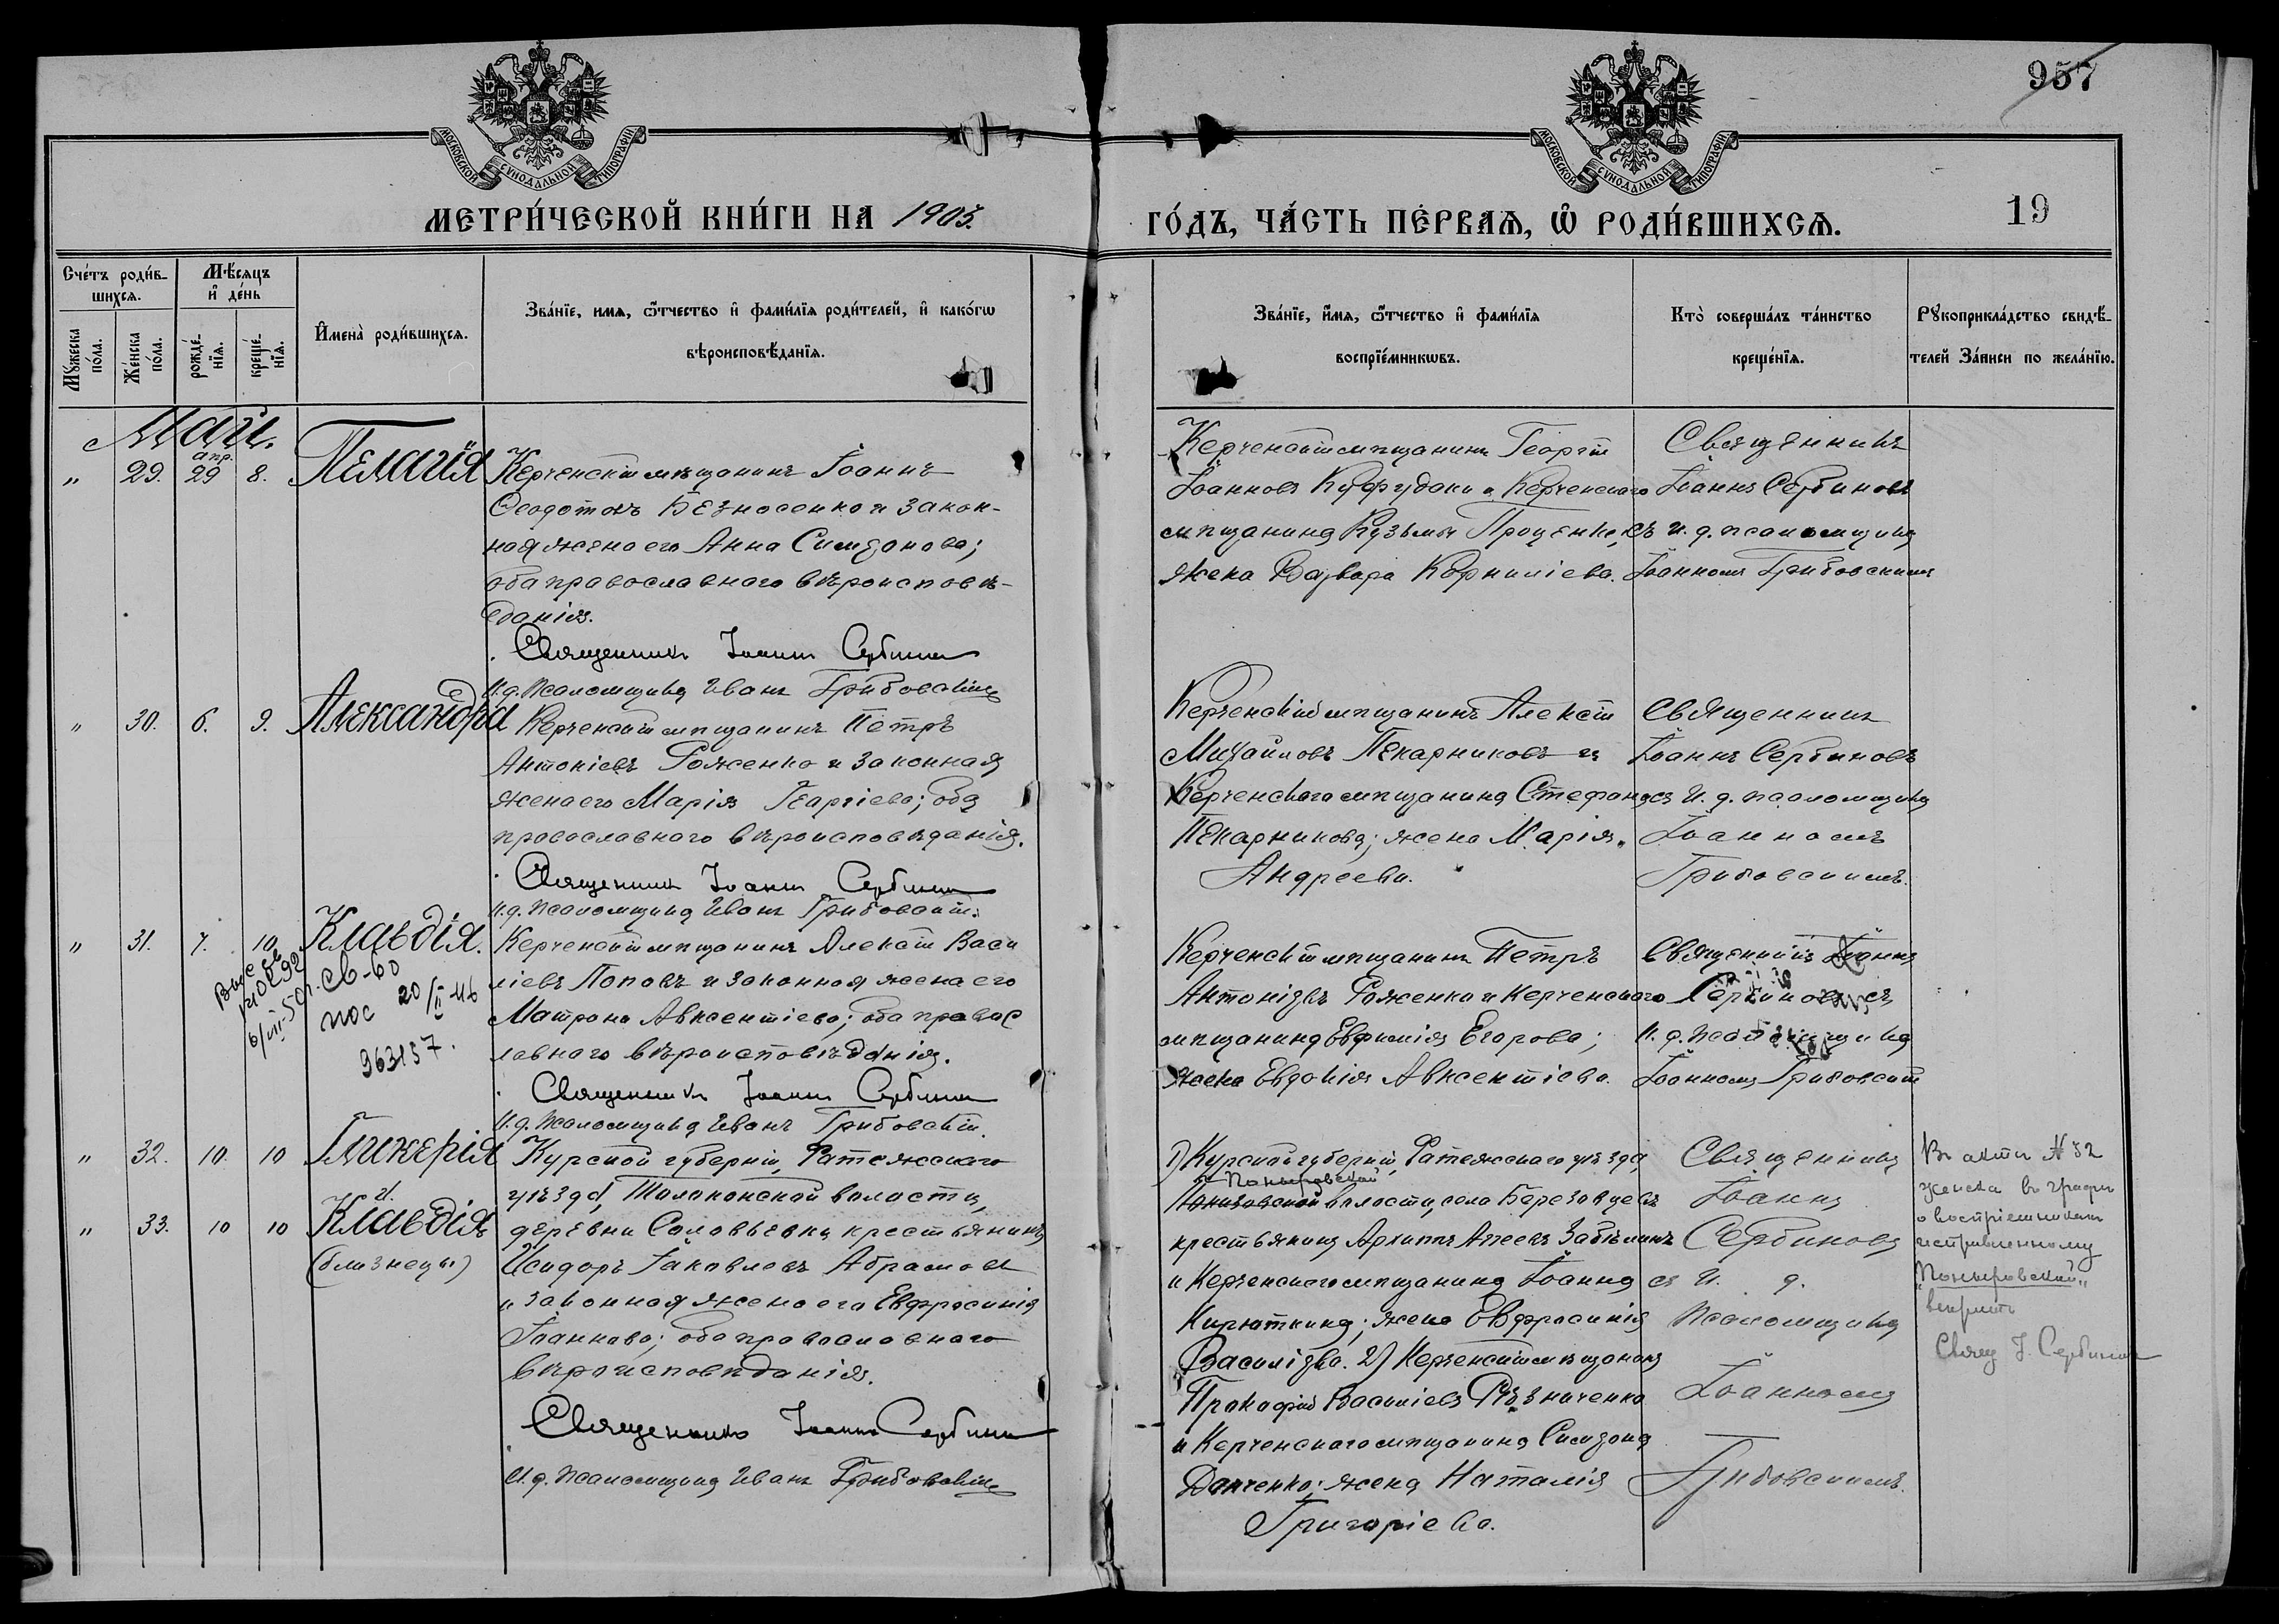 957
МОСКОВСКОЙ СѴНОДАЛЬНОЙ ТИПОГРАФІИ
МОСКОВСКОЙ СѴНОДАЛЬНОЙ ТИПОГРАФІИ
МЕТРИ́ЧЕСКОЙ КНИ́ГИ НА 1903.
ГО́ДЪ, ЧА́СТЬ ПЕ́РВАЯ, Ѡ҆ РОДИ́ВШИХСЯ.
19
Сче́тъ роди́в-
шихся.
Мѣ́сяцъ
и҆ де́нь
Мꙋ́жеска по́ла.
Же́нска по́ла.
рожде́-нїя.
креще́-нїя.
И҆мена̀ роди́вшихся.
Зва́нїе, имя, ѻ҆́тчество и҆ фами́лїя роди́телей, и҆ како́гѡ
вѣроисповѣ́данїя.
Зва́нїе, и҆́мя, ѻ҆́тчество и҆ фами́лїя
воспрїе́мникѡвъ.
Кто̀ соверша́лъ та́инство
креще́нїя.
Рꙋкоприкла́дство свидѣ́-
телей За́писи по жела́нїю.
Май.
апр.
" 29. 29 8. Пелагія
Керченскій мѣщанинъ Іоаннъ
Ѳеодотовъ Безносенко и закон-
ная жена его Анна Симеонова;
оба православнаго вѣроисповѣ-
данія.
Священникъ Іоаннъ Сербиновъ
И.д. псаломщика Иванъ Грибовскій
Керченскій мѣщанинъ Георгій
Іоанновъ Куфудаки и Керченскаго
мѣщанина Кузьмы Проценко,
жена Варвара Корниліева.
Священникъ
Іоаннъ Сербиновъ
съ и. д. псаломщика
Іоанномъ Грибовскимъ
" 30. 6. 9. Александра
Керченскій мѣщанинъ Петръ
Антоніевъ Роженко и законная
жена его Марія Георгіева; оба
православнаго вѣроисповѣданія.
Священникъ Іоаннъ Сербиновъ
И.д. псаломщика Иванъ Грибовскій.
Керченскій мѣщанинъ Алексій
Михайловъ Пекарниковъ и
Керченскаго мѣщанина Стефана
Пекарникова; жена Марія
Андреева.
Священникъ
Іоаннъ Сербиновъ
съ И. д. псаломщика
Іоанномъ
Грибовскимъ.
" 31. 7. 10 Клавдія.
6/VII-50г. СВ-60
20/II-46
963157.
Керченскій мѣщанинъ Алексій Васи
ліевъ Поповъ и законная жена его
Матрона Авксентіева; оба правос
лавнаго вѣроисповѣданія.
Священникъ Іоаннъ Сербиновъ
И.д. псаломщика Иванъ Грибовскій.
Керченскій мѣщанинъ Петръ
Антоніевъ Роженко и Керченскаго
мѣщанина Евфимія Егорова;
жена Евдокія Авксентіева.
Священникъ Іоаннъ
Сербиновъ съ
И. д. псаломщика
Іоанномъ Грибовскимъ
" 32. 10. 10 Гликерія
" 33. 10 10 Клавдія
(близнецы)
Курской губерніи, Фатежскаго
уѣзда,
деревни Соловьевки крестьянинъ
Исидоръ Іаковлевъ Абрамовъ
и законная жена его Евфросинія
Іоаннова; оба православнаго
вѣроисповѣданія.
Священникъ Іоаннъ Сербиновъ
И.д. псаломщика Иванъ Грибовскій
1) Курской губерніи, Фатежскаго уѣзда,
Поныровской
волости, села Березовцевъ
крестьянинъ Архиппъ Забѣлинъ
и Керченскаго мѣщанина Іоанна
жена Евфросинія
Василіева. 2) Керченскій мѣщанинъ
Прокофій Василіевъ Рѣзниченко
и Керченскаго мѣщанина Симеона
Донченко; жена Наталія
Григоріева.
Священникъ
Іоаннъ
Сербиновъ
съ И. д.
псаломщика
Іоанномъ
Грибовскимъ.
Въ актѣ № 32
женска въ графѣ
о воспріемникахъ
исправленному
"Поныровской"
вѣрить
Свящ І. Сербиновъ